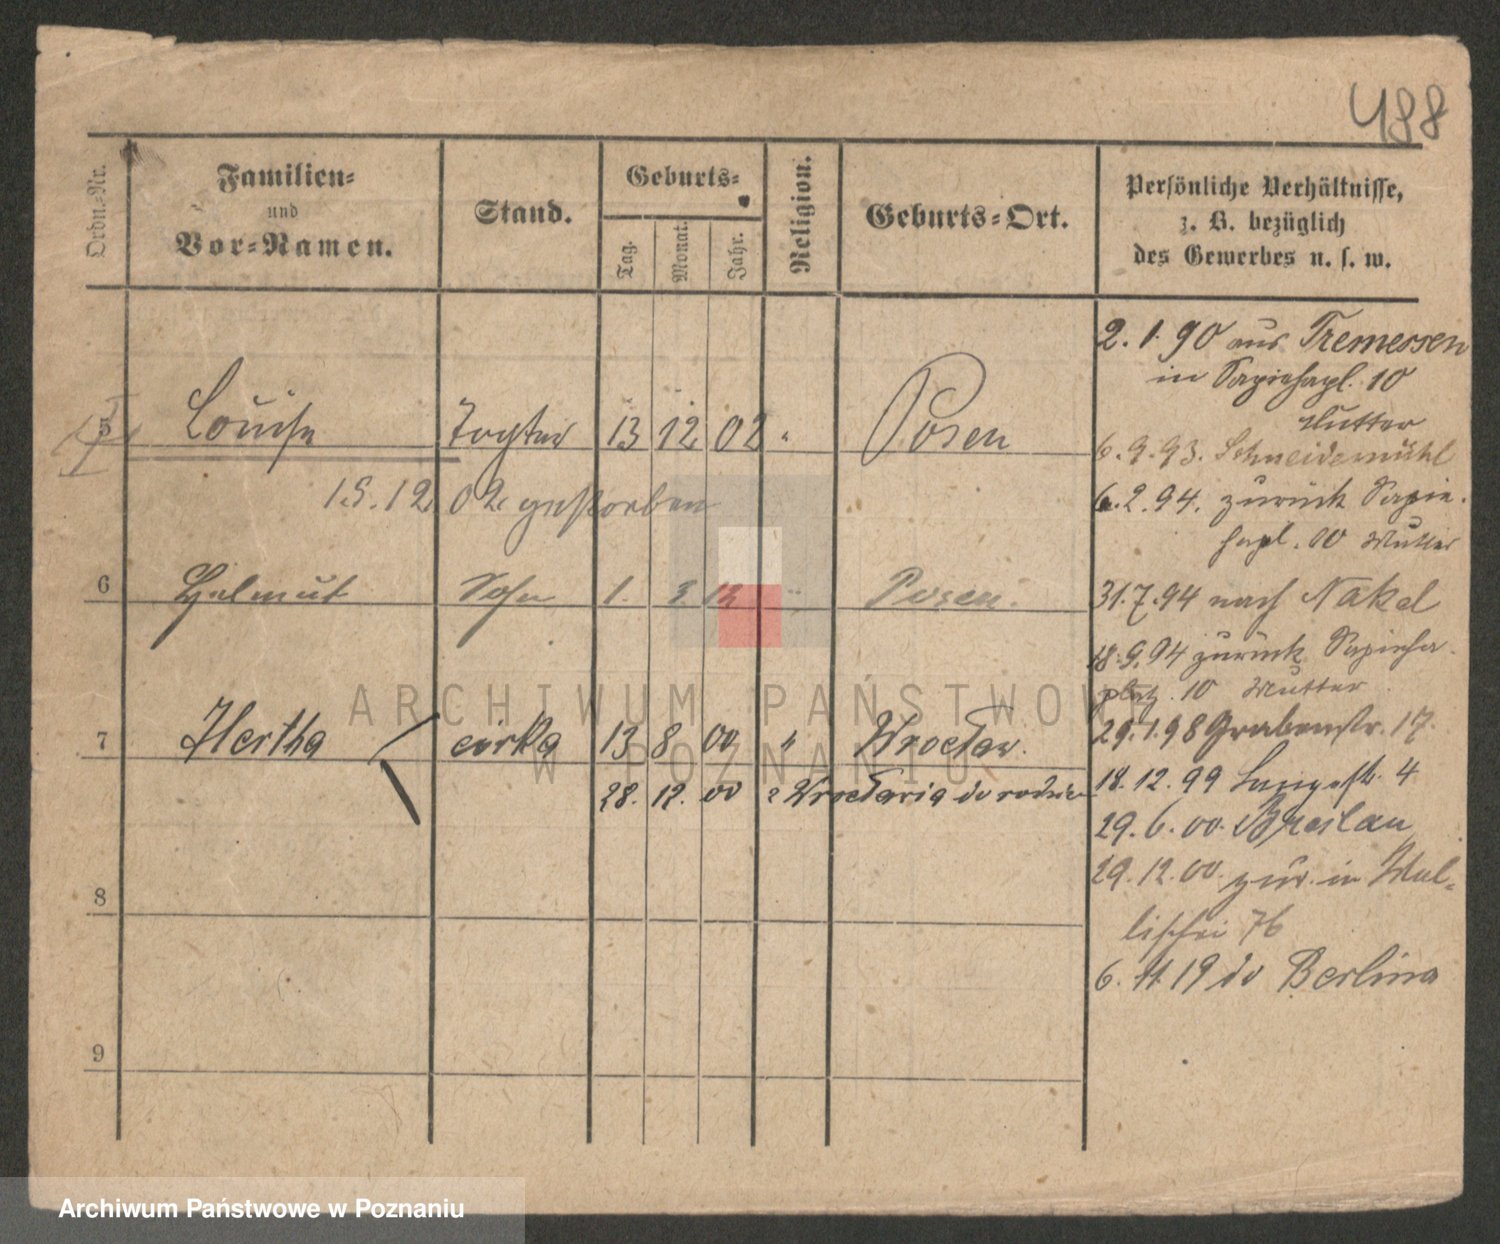 488
Ordn.-Nr.
Familien-
und
Vor-Namen.
Stand.
Geburts-
Tag.
Monat.
Jahr.
Religion.
Geburts-Ort.
Persönliche Verhältnisse,
z. B. bezüglich
des Gewerbes u. s. w.
5 Louise Tochter 13 12 02 " Posen
15.12 02 gestorben
6 Helmut Sohn 1. Posen.
7 Hertha córka 13 8 00 " Wrocław.
28. 12. 00 z Wrocławia do
8
9
2. 1. 90 aus Tremessen
in Sapiehapl. 10
Mutter
6. 9. 93. Schneidemühl
6. 2. 94. zurück Sapie-
hapl. 10 Mutter
31. 7. 94 nach Nakel
18. 9. 94 zurück Sapieha-
platz. 10 Mutter
29. 1. 98 Grabenstr. 17.
18. 12. 99 Langestr. 4
29. 6. 00. Breslau
29. 12. 00. zur. in Wal-
lischei 76
6. 11. 19 do Berlina
ARCHIWUM PAŃSTWOWE
W POZNANIU
Archiwum Państwowe w Poznaniu